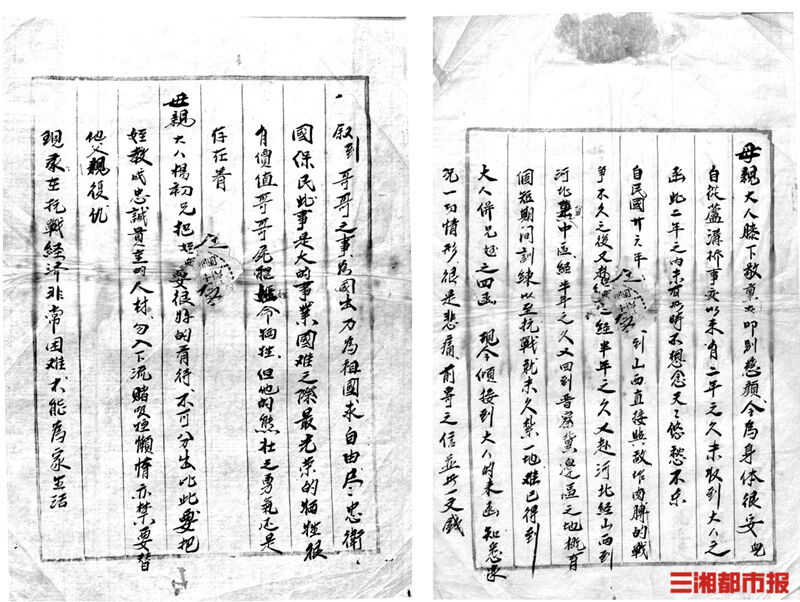 母親大人膝下敬禀者叩别慈顔今為身体很妥兒
自從蘆溝桥事变以来有二年之久未收到大人之
函此二年之内未有此時不想念天々悠愁不乐
自民國廿六年 到山西直接與敌作肉膊的戰
争不久之后又赴 之經半年之久又赴河北經山西到
河北冀中區經半年之久又回到晋察冀边區之地 有
個短期间訓練以至抗戰就未久禁一地难已得到
大人併兄 之四函 現今倾接到大人的来函知悉家
况一切情形很是悲痛前寄之信並無一文錢
叙到哥哥之事為國出力為祖國求自由尽忠衛
國保民此事是大的事業國难之際最光荣的牺牲很
有價值哥哥死 命牺牲但他的熊壮之勇氣还是
存在着
母親大人楊初兄把侄 要很好的看待不可分出比此要把
姪教成忠誠貫主的人材勿入下流赌吸 懒惰亦禁要替
他父親復仇
現家在抗戰經济非常困难不能為家生活
三湘都市报